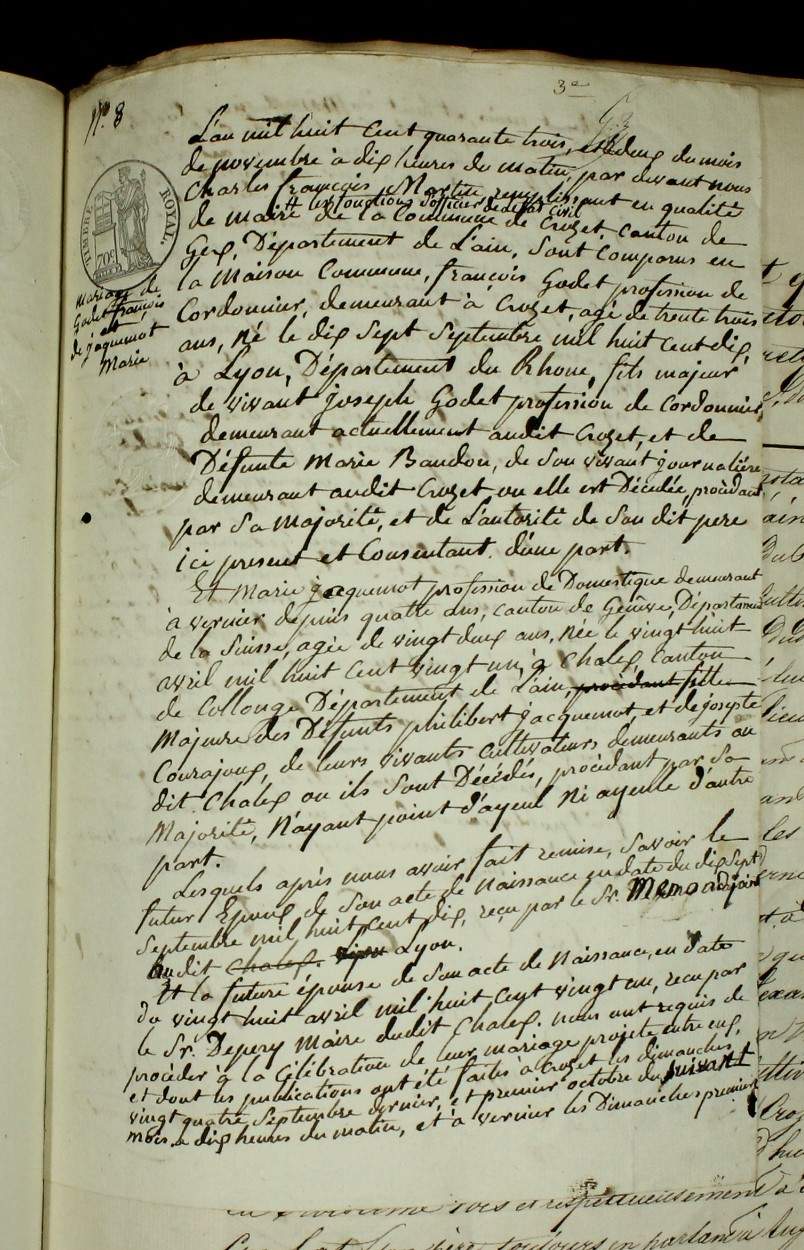 3e
N.° 8
TIMBRE ROYAL
70c
Mariage de
Godet françois
et
de jaquemot
Marie
L'an mil huit Cent quarante trois, et le deux du mois
de novembre à dix heures du matin, par devant nous
Charles françois Martin remplissant en qualité
# les fonctions d'officier de l'état civil
de maire de la Commune de Crozet canton de
Gex, Département de L'ain, Sont Comparus en
la Maison Commune, françois Godet profession de
Cordonnier, demeurant à Crozet, agé de trente trois
ans, Né le dix Sept Septembre mil huit Cent dix,
à Lyon, Département du Rhone, fils majeur
de vivant joseph Godet profession de Cordonnier,
demeurant actuellement audit Crozet, et de
Défunte Marie Baudon, de Son vivant journalière
demeurant audit Crozet ou elle est Décédée, procédant
par Sa Majorité, et de L'autorité de Son dit pere
ici present et Consentant. d'une part.
Et Marie jacquemot profession de Domestique demeurant
à vernier depuis quatre ans, canton de Genève, Département
de la Suisse, agée de vingt deux ans, née le vingt huit
avril mil huit Cent vingt un, à Chalex, Canton
de Collonge Département de L'ain, procédant fille
Majeure des Défunts philibert jacquemot, et de josepte
Courajoux, de leurs vivants Cultivateurs demeurants au
dit Chalex ou ils Sont Décédés, procédant par Sa
Majorité, N'ayant point d'ayeul Ni ayeulle d'autre
part.
Lesquels après nous avoir fait remise, Savoir le
futur Epoux de Son acte de Naissance en date du dix Sept
Septembre mil huit Cent dix, reçu par le Sr. adjoint
audit Chalex. Lyon.
Et la future épouse de Son acte de Naissance, en date
du vingt huit avril mil huit Cent vingt un, recu par
le Sr. Depery Maire dudit Chalex. nous ont requis de
procéder à la Célébration de leur mariage projeté entre eux,
et dont les publications ont été faites à Crozet les dimanches
vingt quatre Septembre dernier, et premier octobre du suivant
mois à dix heures du matin, et à vernier les Dimanches premier